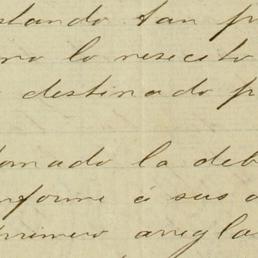 stando tan p
ro lo resecito
destinado p
tomado la deb
nforme á sus o
primero aregla